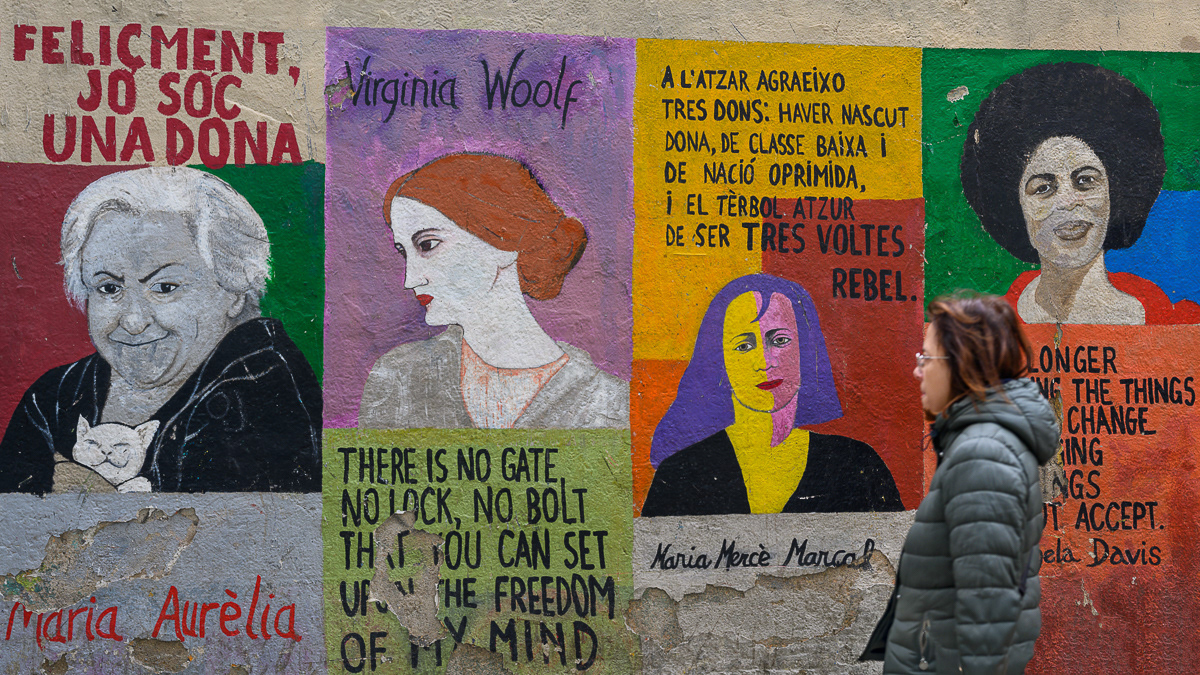 FELIÇMENT,
JO SÓC
UNA DONA
Maria Aurèlia
Virginia Woolf
THERE IS NO GATE,
NO LOCK, NO BOLT
THAT YOU CAN SET
UPON THE FREEDOM
OF MY MIND
A L'ATZAR AGRAEIXO
TRES DONS: HAVER NASCUT
DONA, DE CLASSE BAIXA I
DE NACIÓ OPRIMIDA,
I EL TÈRBOL ATZUR
DE SER TRES VOLTES
REBEL.
Maria Mercè Marçal
LONGER
THE THINGS
CHANGE
ACCEPT.
Davis